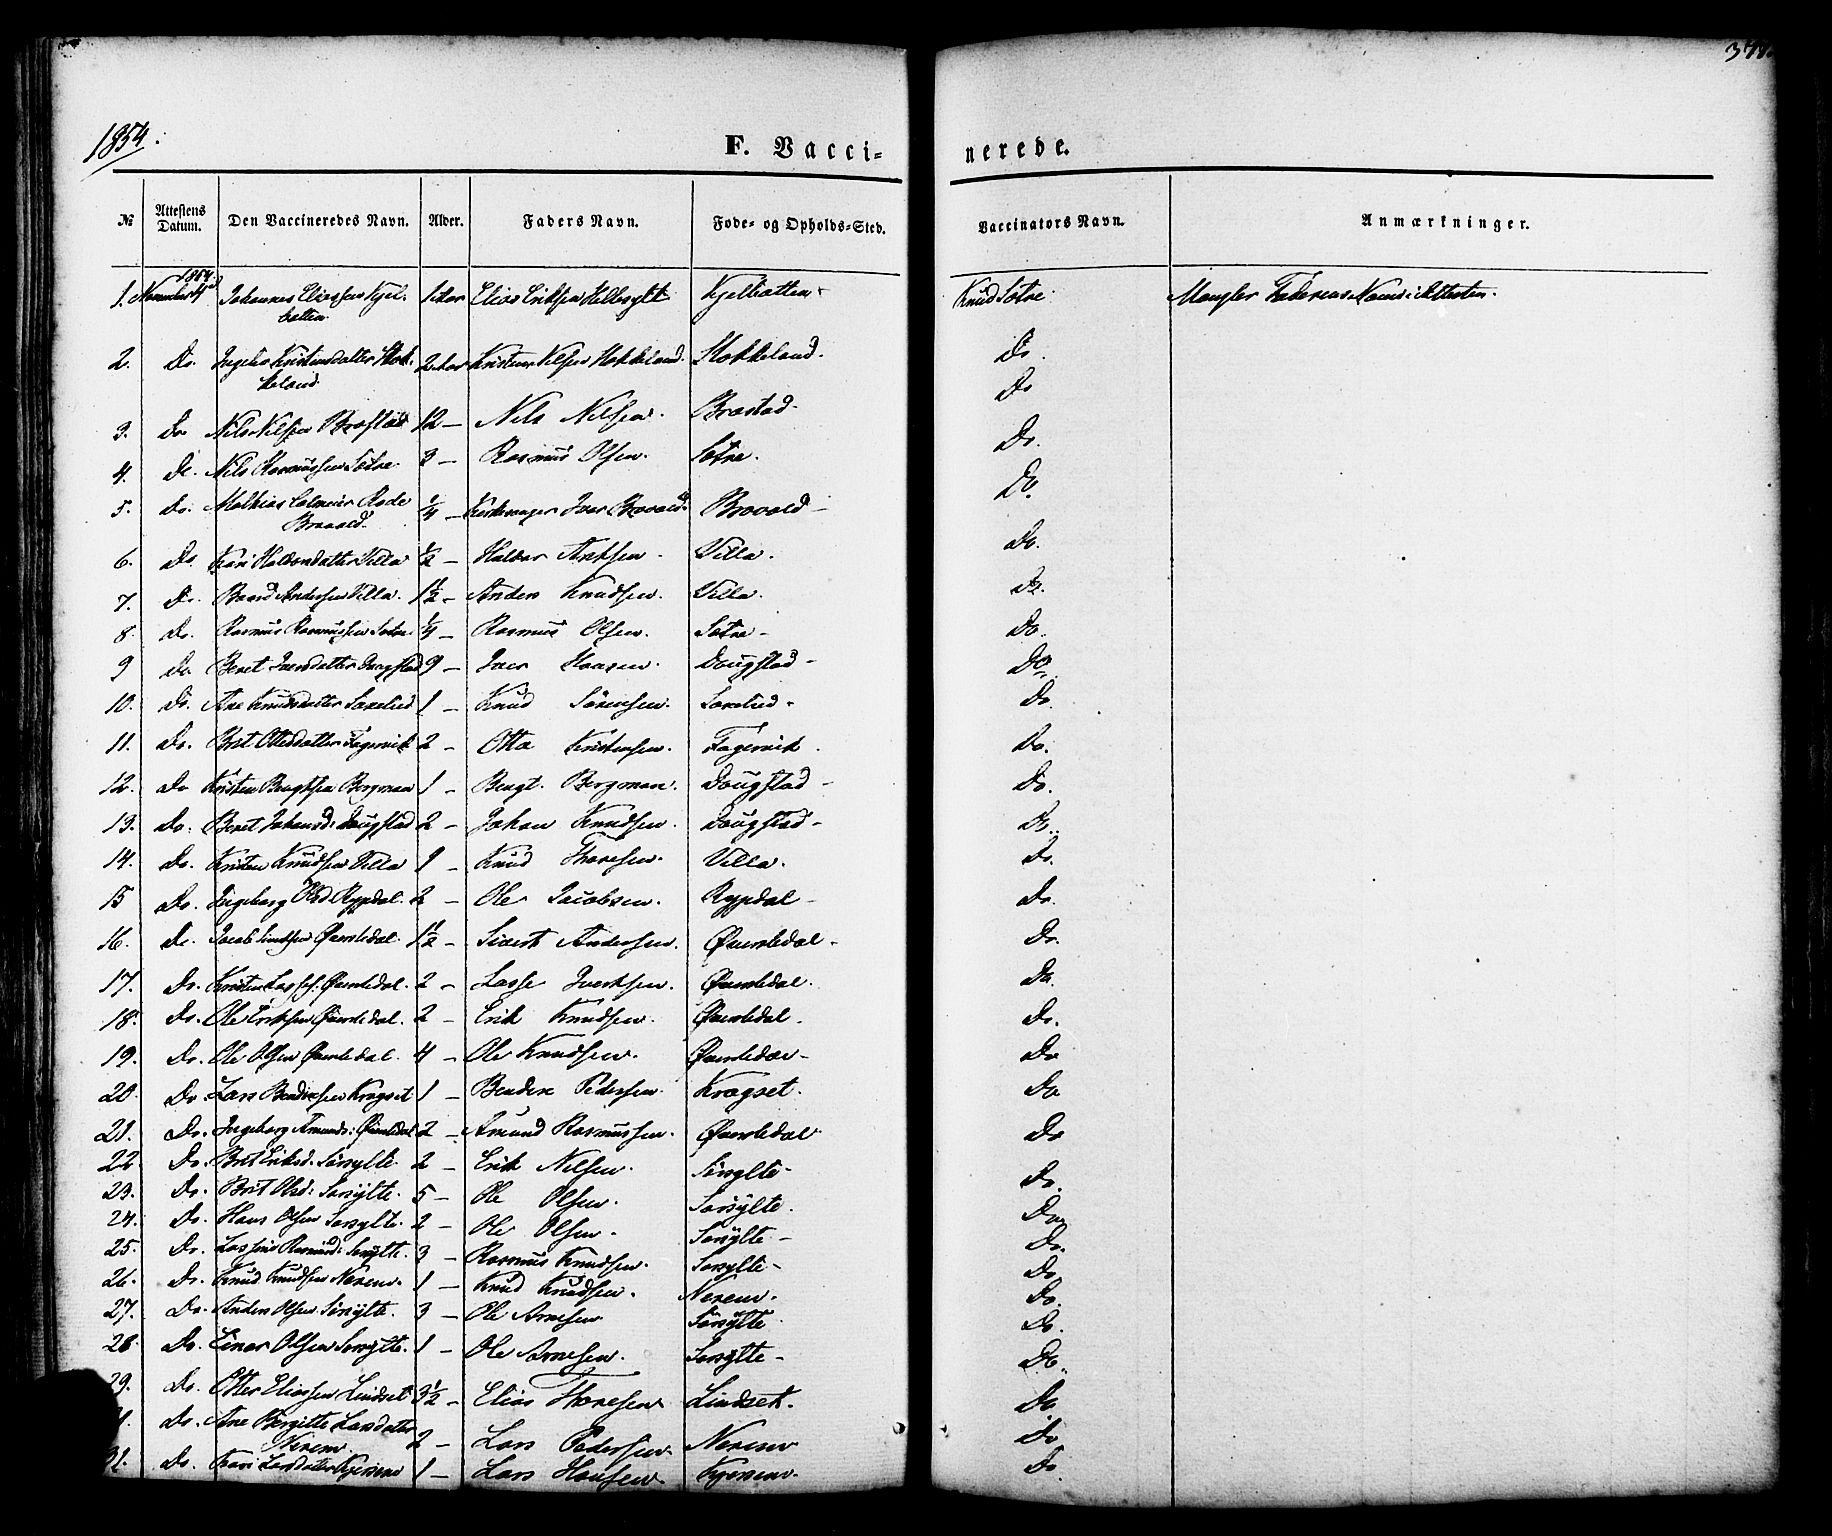 1854.
F. Vacci-
nerede.
№ Attestens Datum. Den Vaccineredes Navn. Alder. Faders Navn. Føde- og Opholds-Sted. Vaccinators Navn. Anmærkninger.
1854
1. November Johannes Eliassen Kjel- 1 Aar Elias Eriksen Hellesylt Kjelbotten Knud Sætre Mangler Faderens Navn i Attesten.
botten
2. Do. Kristensdatter Stok- 2 Aar Kristen Nilsen Stokkeland. Stokkeland. Do.
keland
3. Do. Nils Nilsen Brastad 12 - Nils Nilsen. Brastad - Do
4. Do. Nils Rasmussen Sætre. 3 - Rasmus Olsen. Sætre. Do.
5. Do. Mathias Rode ¼ - Kirkesanger Iver Bravold. Bravold - Do.
Bravold.
6. Do. Kari Villa ½ - Halvor Villa. Do.
7. Do. Baard Andersen Villa. 1½ - Anders Knudsen. Villa. Do.
8. Do. Rasmus Rasmussen Sætre. ¼ - Rasmus Olsen. Sætre - Do.
9 Do. Beret Iversdatter Dougstad 9 - Iver Hansen. Dougstad - Do.
10. Do. Ane Knudsdatter Saxelied 1 - Knud Sørensen. Saxelied - Do.
11. Do. Brit Ottesdatter Fagervik 2 - Otto Kristensen. Fagervik. Do.
12. Do Kristen Bengtsen Bergman 1 - Bengt. Bergman. Dougstad - Do.
13. Do. Beret Johansd: Dougstad 2 - Johan Knudsen. Dougstad - Do.
14. Do. Kristen Knudsen Villa 1 - Knud Thoresen. Villa. Do.
15 Do. Ingeborg Olsd Rypdal. 2 - Ole Jacobsen. Rypdal - Do.
16. Do. Jacob Øverledal. 1½ - Sivert Andersen. Øverledal - Do.
17. Do. Kristen Lasses. Øverledal. 2 - Lasse Øverledal. Do.
18. Do. Ole Eriksen Øverledal. 2 - Erik Knudsen. Øverledal. Do.
19. Do. Ole Olsen Øverledal. 4 - Ole Knudsen. Øverledal - Do
20. Do Lars Bendixsen Kragset 1 - Bendix Pedersen. Kragset. Do
21. Do. Ingeborg Amunds: Øverledal 2 - Amund Rasmussen. Øverledal Do
22. Do. Brit Eriksd. Sørsylte. 2 - Erik Nilsen. Sørsylte - Do.
23. Do. Brit Olsd: Sørsylte. 5 - Ole Olsen. Sørsylte. Do
24. Do. Hans Olsen Sørsylte. 2 - Ole Olsen. Sørsylte - Do.
25. Do. Rasmusd: Sørsylte. 3 - Rasmus Knudsen. Sørsylte - Do.
26. Do. Knud Knudsen Nerem. 1 - Knud Knudsen. Nerem. Do.
27. Do. Anders Olsen Sørsylte. 3 - Ole Arnesen Sørsylte. Do.
28. Do. Einar Olsen Sørsylte. 1 - Ole Arnesen. Sørsylte - Do.
29. Do. Otter Eliassen Lindset 3½ - Elias Thoresen Lindset. Do
Do. Ane Birgitte Larsdatter
Nerem. 2 - Lars Pedersen. Nerem Do
31. Do. Kari Larsdatter 1 - Lars Hansen. Do.